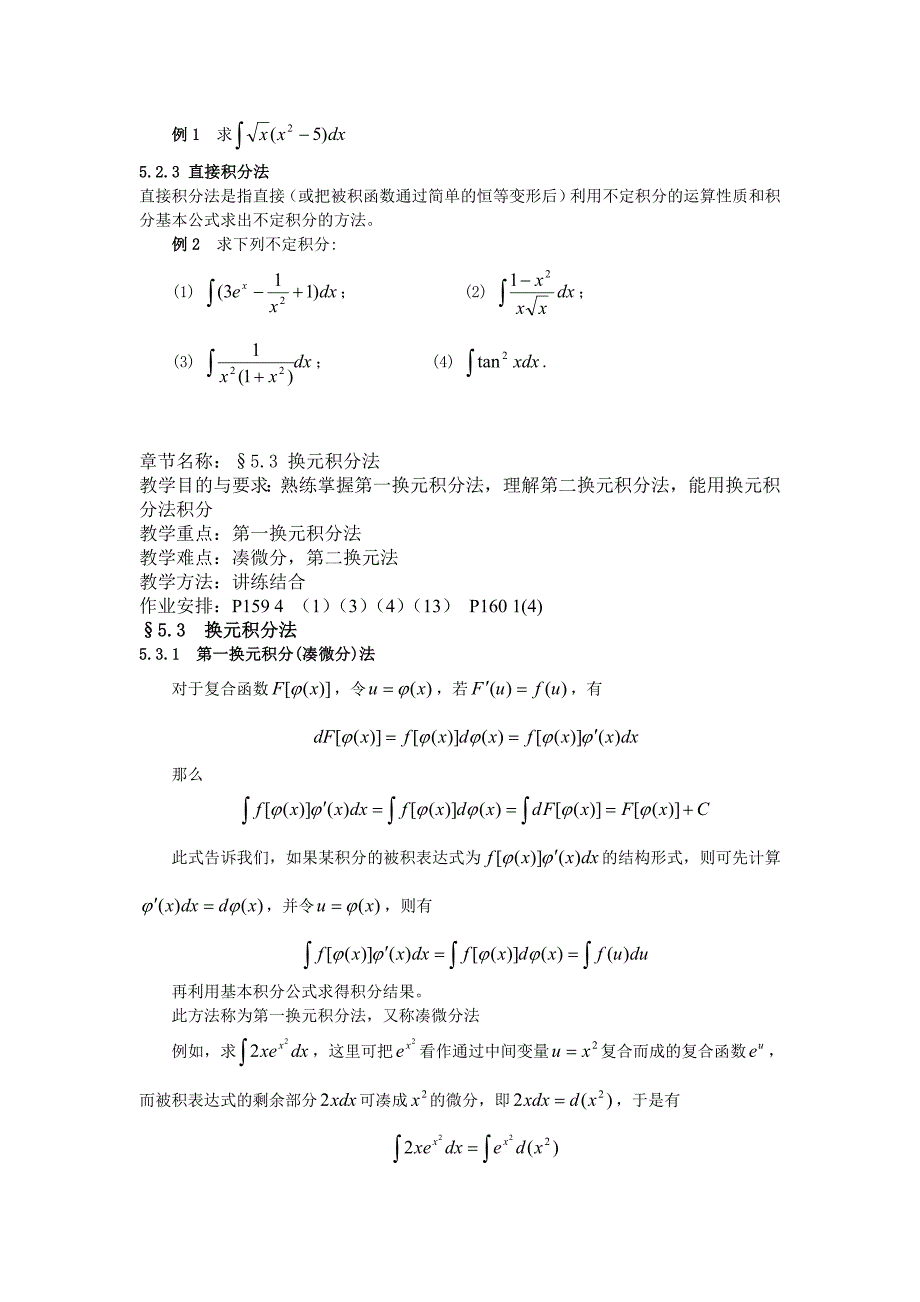 例1 求∫√x(x²−5)dx
5.2.3 直接积分法
直接积分法是指直接(或把被积函数通过简单的恒等变形后)利用不定积分的运算性质和积
分基本公式求出不定积分的方法。
例2 求下列不定积分:
(1) ∫(3eˣ − 1/x² + 1)dx; (2) ∫(1−x²)/(x√x) dx;
(3) ∫1/(x²(1+x²)) dx; (4) ∫tan² xdx.
章节名称:§5.3 换元积分法
教学目的与要求:熟练掌握第一换元积分法,理解第二换元积分法,能用换元积
分法积分
教学重点:第一换元积分法
教学难点:凑微分,第二换元法
教学方法:讲练结合
作业安排:P159 4 (1)(3)(4)(13) P160 1(4)
§5.3 换元积分法
5.3.1 第一换元积分(凑微分)法
对于复合函数F[φ(x)],令u = φ(x),若F′(u) = f(u),有
dF[φ(x)] = f[φ(x)]dφ(x) = f[φ(x)]φ′(x)dx
那么
∫f[φ(x)]φ′(x)dx = ∫f[φ(x)]dφ(x) = ∫dF[φ(x)] = F[φ(x)] + C
此式告诉我们,如果某积分的被积表达式为f[φ(x)]φ′(x)dx的结构形式,则可先计算
φ′(x)dx = dφ(x),并令u = φ(x),则有
∫f[φ(x)]φ′(x)dx = ∫f[φ(x)]dφ(x) = ∫f(u)du
再利用基本积分公式求得积分结果。
此方法称为第一换元积分法,又称凑微分法
例如,求∫2xe^(x²)dx,这里可把e^(x²)看作通过中间变量u = x²复合而成的复合函数eᵘ,
而被积表达式的剩余部分2xdx可凑成x²的微分,即2xdx = d(x²),于是有
∫2xe^(x²)dx = ∫e^(x²)d(x²)